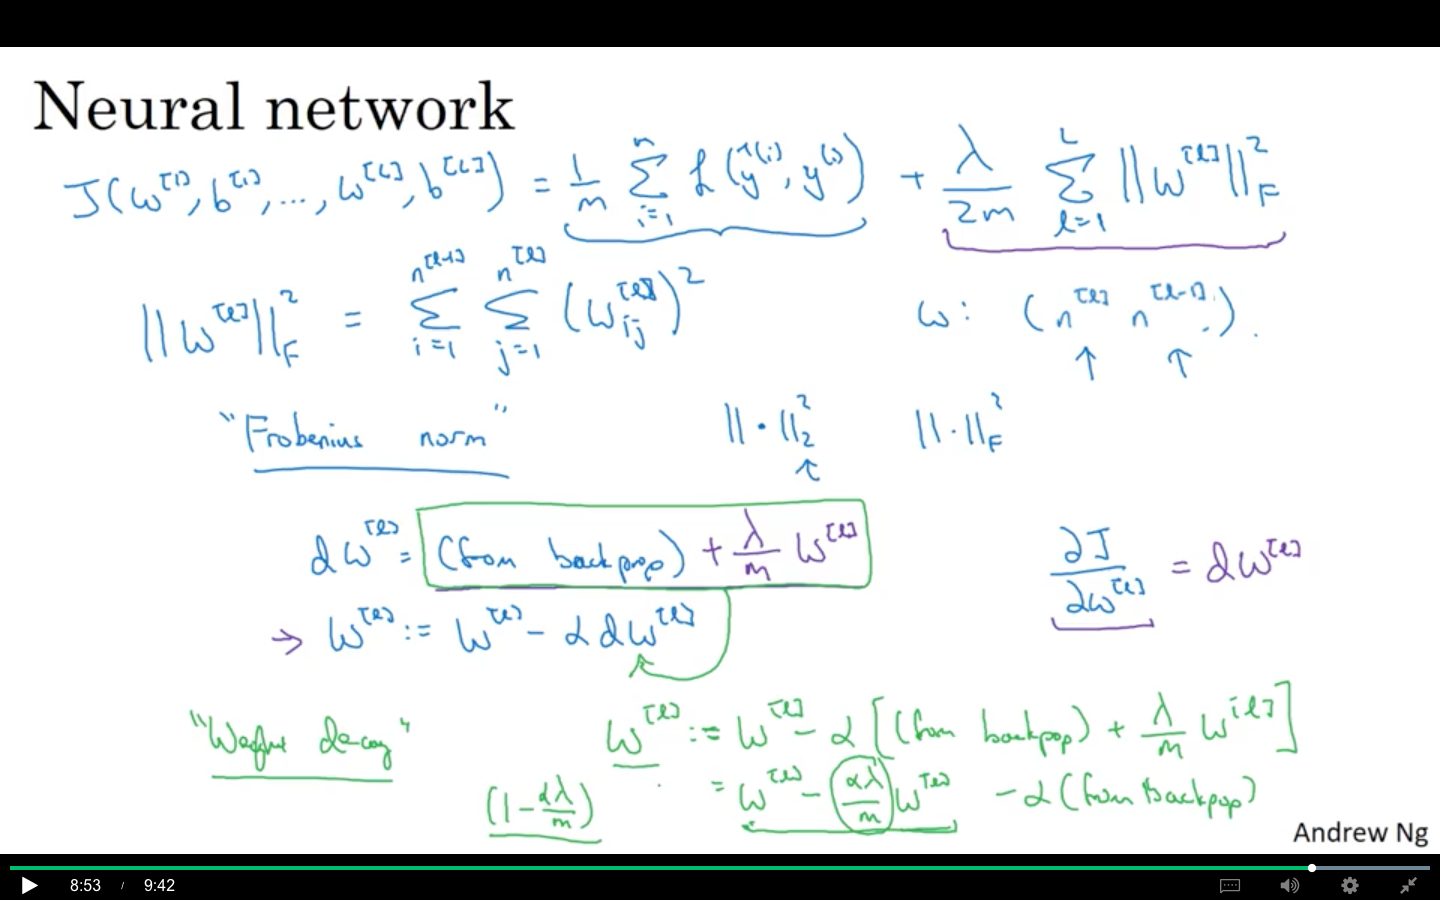 Neural network
J(w^[1], b^[1], ..., w^[L], b^[L]) = 1/m Σ_{i=1}^{n} L(ŷ^(i), y^(i)) + λ/2m Σ_{l=1}^{L} ||w^[l]||²_F
||w^[l]||²_F = Σ_{i=1}^{n^[l-1]} Σ_{j=1}^{n^[l]} (w_ij^[l])² w: (n^[l] n^[l-1]).
"Frobenius norm" ||·||²_2 ↑ ||·||²_F
dw^[l] = (from backprop) + λ/m w^[l] ∂J/∂w^[l] = dw^[l]
→ w^[l] := w^[l] - α dw^[l]
"Weight decay" w^[l] := w^[l] - α [(from backpop) + λ/m w^[l]]
(1 - αλ/m) = w^[l] - αλ/m w^[l] - α (from backpop)
Andrew Ng
8:53 / 9:42